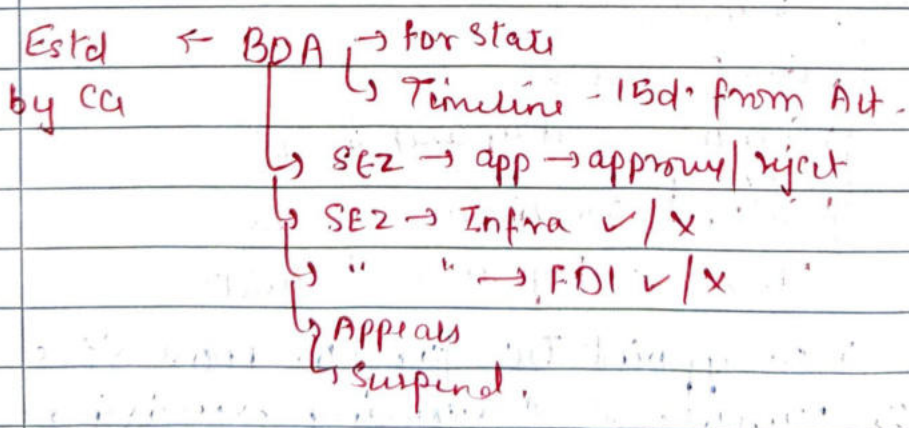 Estd ← BOA → for State
by CG ↳ Timeline - 15d. from Act.
↳ SEZ → app → approve/ reject
↳ SEZ → Infra ✓/X
↳ " " → FDI ✓/X
↳ Appeals
↳ Suspend.